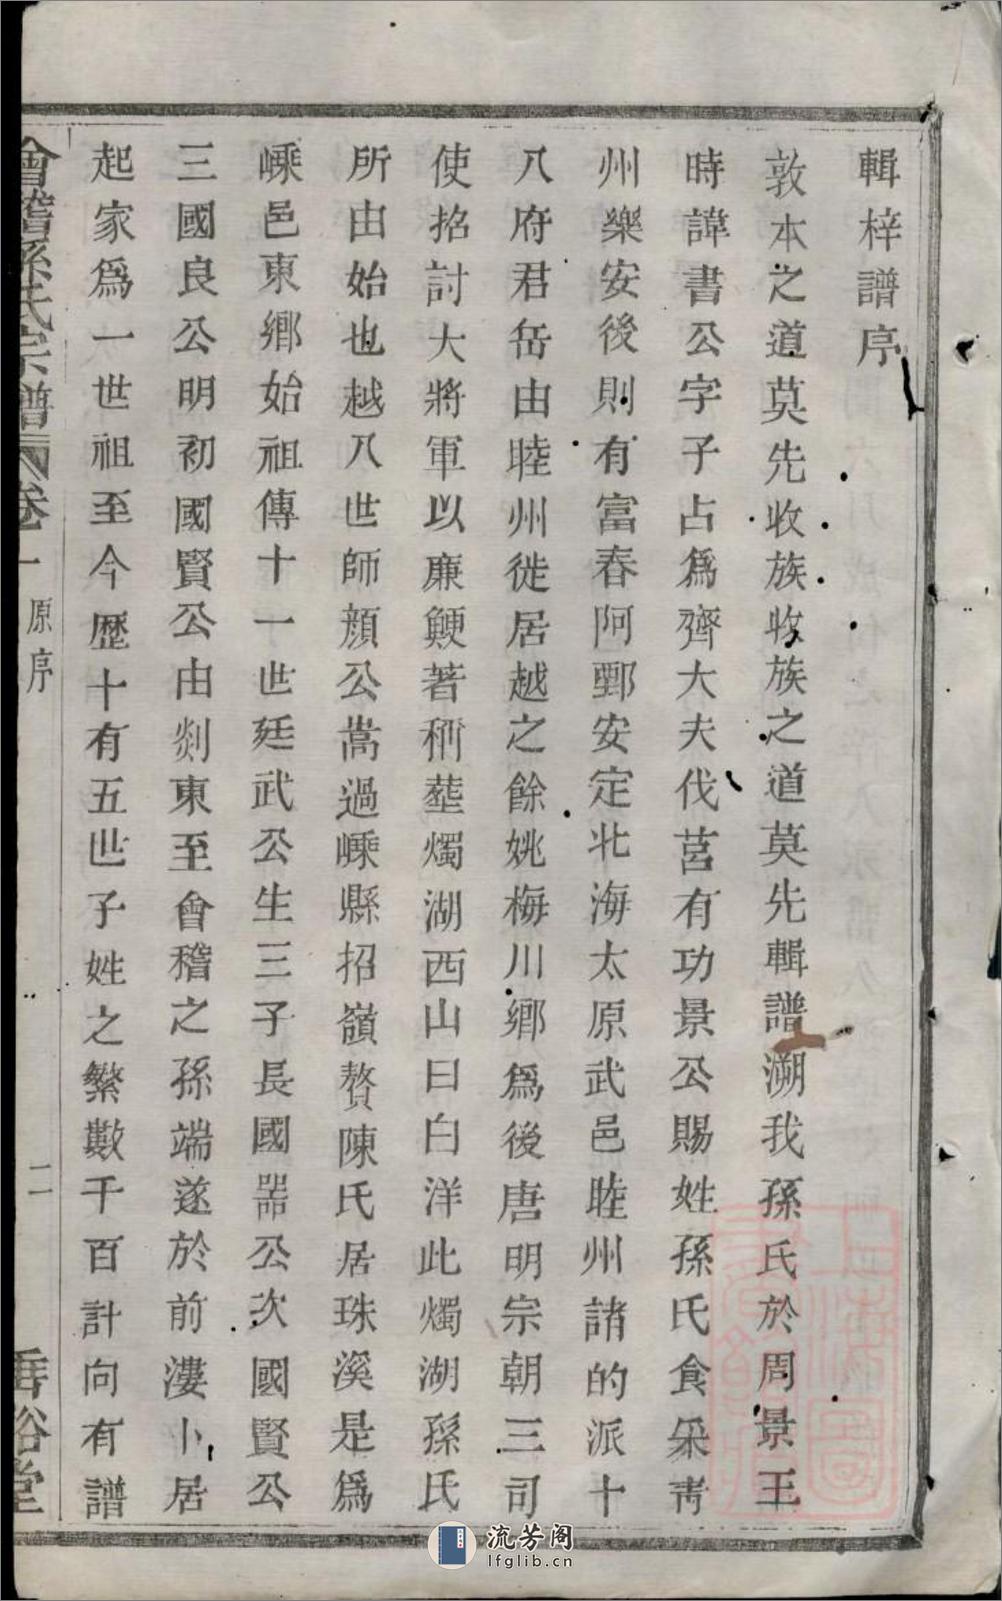 輯梓譜序
敦本之道莫先收族收族之道莫先輯譜溯我孫氏於周景王
時諱書公字子占爲齊大夫伐莒有功景公賜姓孫氏食采青
州樂安後則有富春阿鄄安定北海太原武邑睦州諸的派十
八府君岳由睦州徙居越之餘姚梅川鄉爲後唐明宗朝三司
使招討大將軍以廉鯁著稱塟燭湖西山曰白洋此燭湖孫氏
所由始也越八世師顏公嵩過嵊縣招嶺贅陳氏居珠溪是爲
嵊邑東鄉始祖傳十一世廷武公生三子長國器公次國賢公
三國良公明初國賢公由剡東至會稽之孫端遂於前漊卜居
起家爲一世祖至今歷十有五世子姓之繁數千百計向有譜
會稽孫氏宗譜 卷一 原序 二 垂裕堂
流芳阁
lfglib.cn